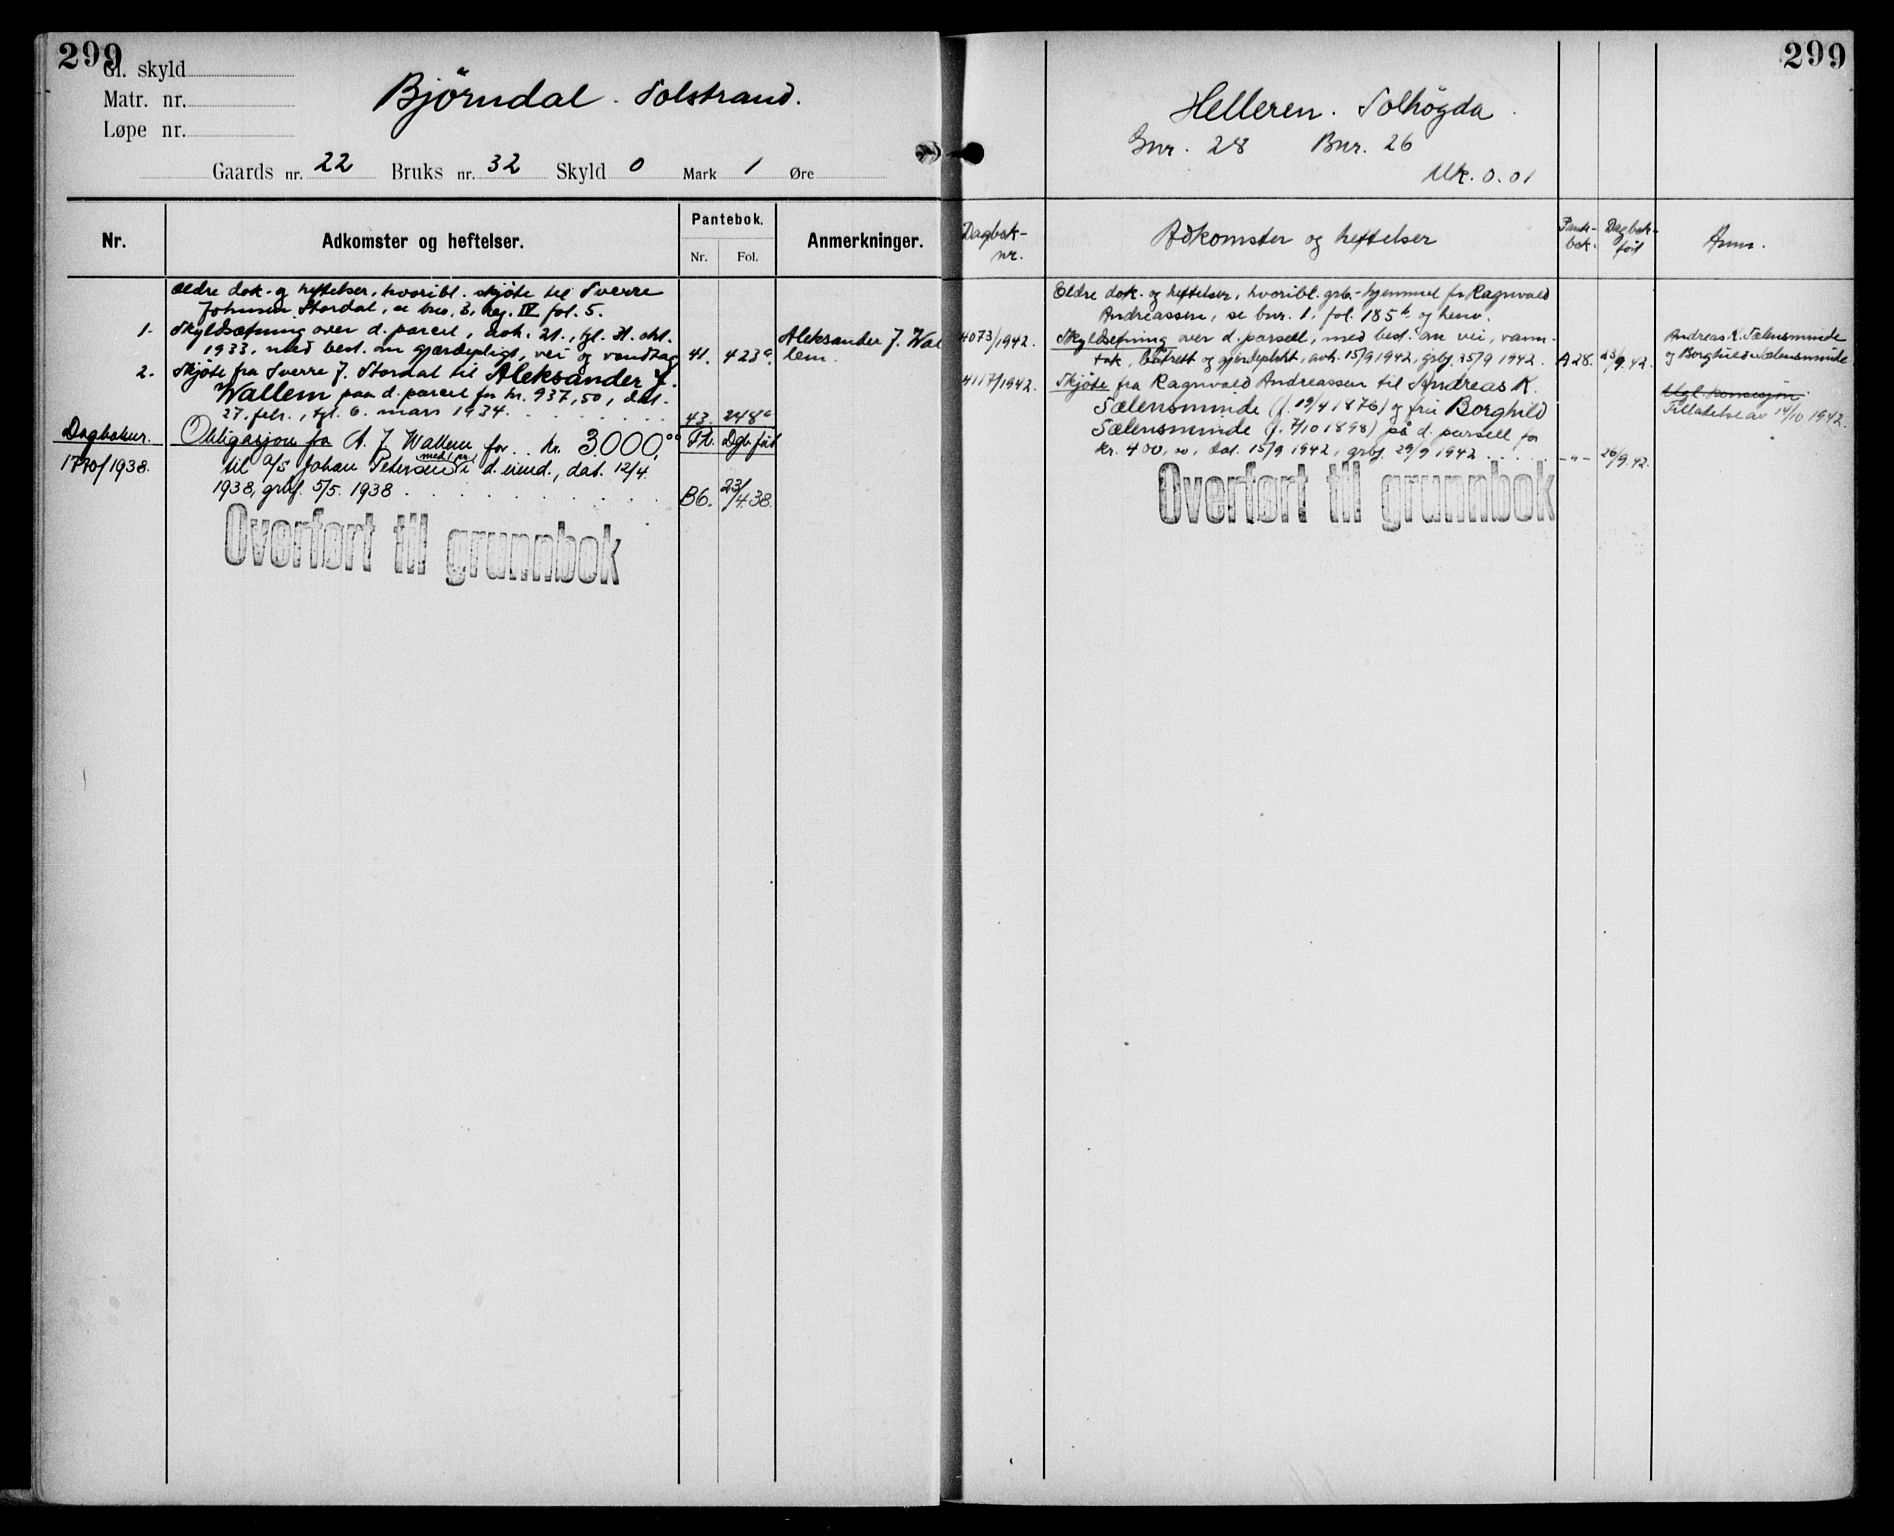 299
Gl. skyld
Matr. nr.
Løpe nr.
Bjørndal. Solstrand.
Gaards nr. 22 Bruks nr. 32 Skyld 0 Mark 1 Øre
Nr.
Adkomster og heftelser.
Pantebok.
Nr. Fol.
Anmerkninger.
Ældre dok. og heftelser, hvoribl. skjöte til Sverre
Johnsen Stordal, se bno. 3, reg. IV fol. 5.
1. Skyldsætning over d. parcel, avh. 21., tgl. 31. okt.
1933, med best. om gjærdepligt, vei og vandtag 41. 423a.
Aleksander J. Wal
lem.
2. Skjöte fra Sverre J. Stordal til Aleksander J.
Wallem paa d. parcel for kr. 937,50, dat.
27. febr., tgl. 6. mars 1934. 43. 248a
Dagboknr. Obligasjon fra A. J. Wallem for kr. 3000,00 Pb. Dgb. ført
1770/1938. til A/S Johan Petersen med 1 pr. i d. eiend., dat. 12/4
1938, grbf. 5/5. 1938 B6. 23/4.38.
Overført til grunnbok
299
Helleren. Solhögda.
Gnr. 28 Bnr. 26
Mk. 0.01
Dagbok-
nr.
Adkomster og heftelser
Pante-
bok.
Dagbok-
ført
Anm.
Eldre dok. og heftelser, hvoribl. grb.-hjemmel for Ragnvald
Andreassen, se bnr. 1, fol. 185b og henv.
4073/1942. Skyldsetning over d. parsell, med best. om vei, vann-
tak, båtrett og gjerdeplikt, avh. 15/9 1942, grbf. 25/9 1942. A28. 23/9.42.
Andreas K. Sælensminde
og Borghild Sælensminde
4117/1942. Skjöte fra Ragnvald Andreassen til Andreas K.
Sælensminde (f. 19/4 1876) og fru Borghild
Sælensminde (f. 7/10 1898) på d. parsell for
kr. 400,00, dat. 15/9 1942, grbf. 29/9 1942 -"- 26/9.42.
konsesjon
Tilladelse av 14/10 1942.
Overført til grunnbok